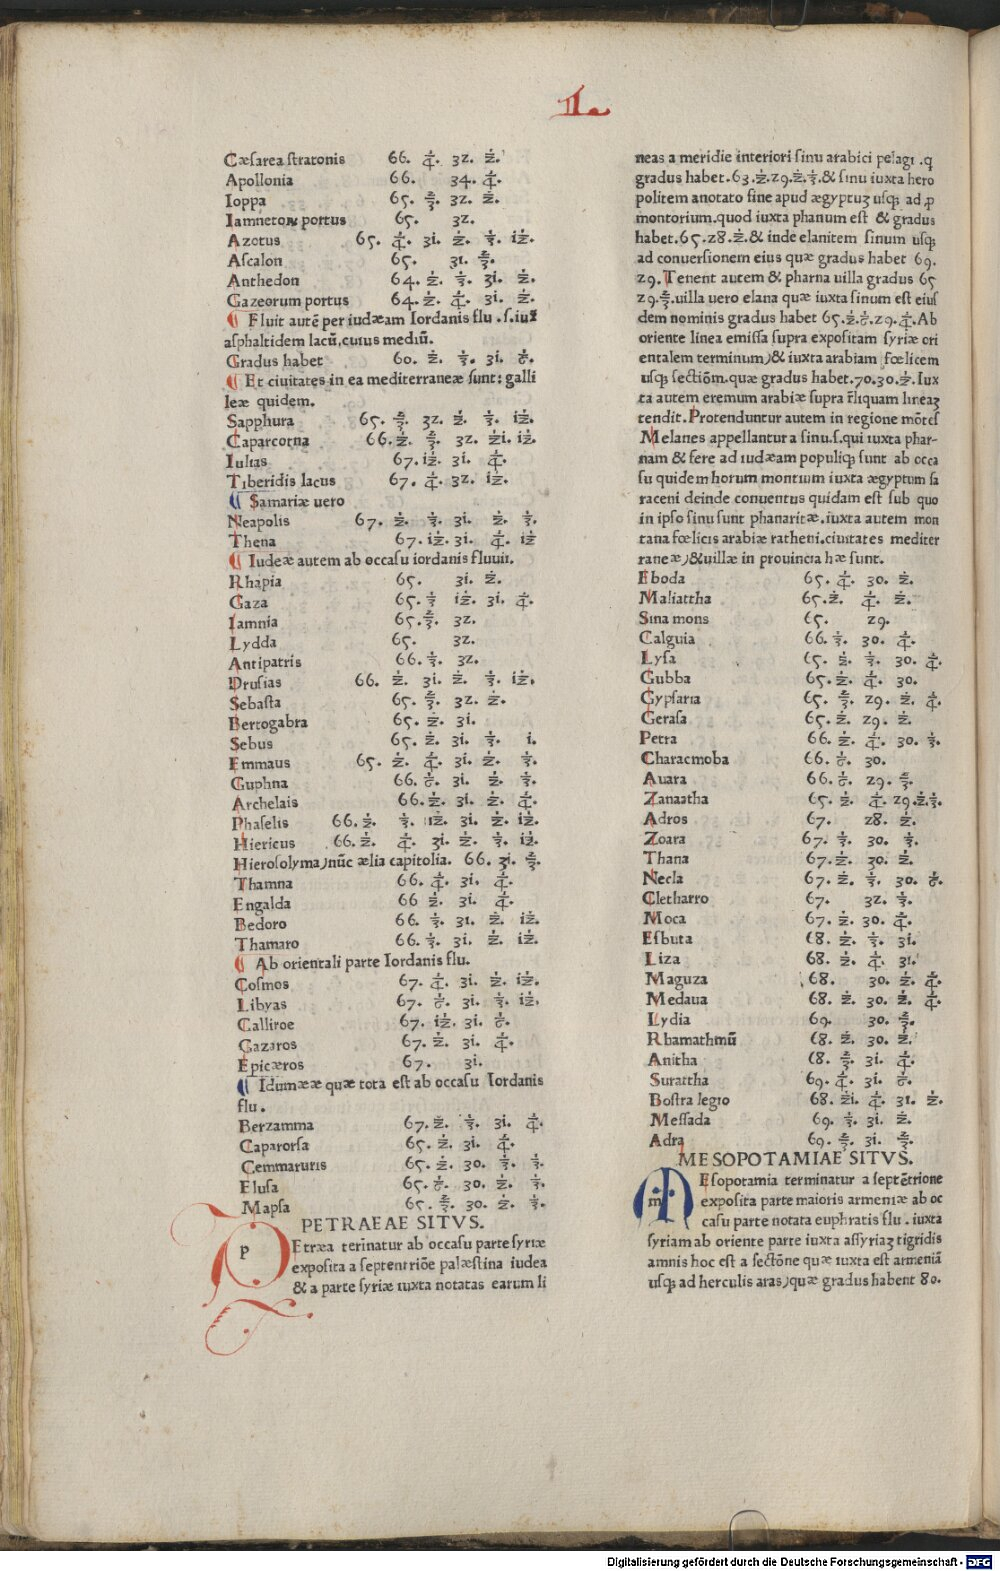 II.
Cæsarea stratonis 66. 4̇. 32. ż.
Apollonia 66. 34. 4̇.
Ioppa 65. ⅔. 32. ż.
Iamnetoꝝ portus 65. 32.
Azotus 65. 4̇. 3i. ż. 3̇. iż.
Ascalon 65. 31. ⅔.
Anthedon 64. ż. 3̇. 3i. ż.
Gazeorum portus 64. ż. 4̇. 3i. ż.
¶ Fluit autē per iudæam Iordanis flu .s. iux
asphaltidem lacū, cuius mediū.
Gradus habet 60. ż. 3̇. 3i. 6̇.
¶ Et ciuitates in ea mediterraneæ sunt: galli
leæ quidem.
Sapphura 65. ⅔. 32. ż. 3̇. iż.
Caparcotna 66. ż. ⅔. 32. żi. iż.
Iulias 67. iż. 3i. 4̇.
Tiberidis lacus 67. 4̇. 32. iż.
¶ Samariæ uero
Neapolis 67. ż. 3̇. 3i. ż. 3̇.
Thena 67. iż. 3i. 4̇. iż
¶ Iudeæ autem ab occasu iordanis fluuii.
Rhapia 65. 3i. ż.
Gaza 65. 3̇ iż. 3i. 4̇.
Iamnia 65. ⅔. 32.
Lydda 65. 32.
Antipatris 66. 3̇. 32.
Drusias 66. ż. 3i. ż. 3̇. iż.
Sebasta 65. ⅔. 32. ż.
Bertogabra 65. ż. 3i.
Sebus 65. ż. 3i. 3̇. i.
Emmaus 65. ż. 4̇. 3i. ż. 3̇.
Guphna 66. 6̇. 3i. ż. 3̇.
Archelais 66. ż. 3i. ż. 4̇.
Phaselis 66. ż. 3̇. iż. 3i. ż. iż.
Hiericus 66. ż. 4̇. 3i. ż. 3̇. iż.
Hierosolyma, nūc ælia capitolia. 66. 3i. ⅔.
Thamna 66. 4̇. 3i. 4̇.
Engalda 66 ż. 3i. 4̇.
Bedoro 66. 3̇. 31. ż. iż.
Thamaro 66. 3̇. 3i. ż. iż.
¶ Ab orientali parte Iordanis flu.
Cosmos 67. 4̇. 3i. ż. iż.
Libyas 67. 6̇. 3i. 3̇. iż.
Calliroe 67. iż. 3i. 6̇.
Gazaros 67. ż. 3i. 4̇.
Epicæros 67. 3i.
¶ Idumææ quæ tota est ab occasu Iordanis
flu.
Berzamma 67. ż. 3̇. 3i. 4̇.
Caparorsa 65. ż. 3i. 4̇.
Gemmaruris 65. ż. 30. 3̇. 3̇.
Elusa 65. 6̇. 30. ż. 3̇.
Mapsa 65. ⅔. 30. ż. 3̇.
PETRAEAE SITVS.
p Etræa terīnatur ab occasu parte syriæ
exposita a septentriōe palæstina iudea
& a parte syriæ iuxta notatas earum li
neas a meridie interiori sinu arabici pelagi .q
gradus habet .63. ż. z9. ż. 3̇. & sinu iuxta hero
politem anotato fine apud ægyptuꝫ usqꝫ ad ꝓ
montorium. quod iuxta phanum est & gradus
habet. 65. z8. ż. & inde elanitem sinum usqꝫ
ad conuersionem eius quæ gradus habet 69.
z9. Tenent autem & pharna uilla gradus 65
z9. ⅔. uilla uero elana quæ iuxta sinum est eius
dem nominis gradus habet 65. ż. 6̇. z9. 4̇. Ab
oriente linea emissa supra expositam syriæ ori
entalem terminum, & iuxta arabiam fœlicem
usqꝫ sectiōm. quæ gradus habet. 70. 30. ż. Iux
ta autem eremum arabiæ supra r̄liquam lineaꝫ
tendit. Protenduntur autem in regione mōtes
Melanes appellantur a sinu. s. qui iuxta phar-
nam & fere ad iudæam populiqꝫ sunt ab occa
su quidem horum montium iuxta ægyptum sa
raceni deinde conuentus quidam est sub quo
in ipso sinu sunt phanaritæ. iuxta autem mon
tana fœlicis arabiæ ratheni. ciuitates mediter
raneæ, & uillæ in prouincia hæ sunt.
Eboda 65. 4̇. 30. ż.
Maliattha 65. ż. 4̇. ż.
Sina mons 65. z9.
Calguia 66. 3̇. 30. 4̇.
Lysa 65. ż. 3̇. 30. 4̇.
Gubba 65. ż. 4̇. 30.
Gypsaria 65. ⅔. z9. ż. 4̇.
Gerasa 65. ż. z9. ż.
Petra 66. ż. 4̇. 30. 3̇.
Characmoba 66. 6̇. 30.
Auara 66. 6̇. z9. ⅔.
Zanaatha 65. ż. 4̇. z9. ż. 3̇.
Adros 67. z8. ż.
Zoara 67. 3̇. 30. 3̇.
Thana 67. ż. 30. ż.
Necla 67. ż. 3̇. 30. 6̇.
Cletharro 67. 32. 3̇.
Moca 67. ż. 30. 4̇.
Esbuta 68. ż. 3̇. 3i.
Liza 68. ż. 4̇. 31.
Maguza 68. 30. ż. 4̇.
Medaua 68. ż. 30. ż. 4̇.
Lydia 69. 30. ⅔.
Rbamathmū 68. ż. 30. ż.
Anitha 68. ⅔. 3i. 4̇.
Surattha 69. 4̇. 3i. 6̇.
Bostra legio 68. żi. 4̇. 31. ż.
Messada 69. 3̇. 3i. ż.
Adra 69. ⅔. 3i. ⅔.
MESOPOTAMIAE SITVS.
m Esopotamia terminatur a septētrione
exposita parte maioris armeniæ ab oc
casu parte notata euphratis flu. iuxta
syriam ab oriente parte iuxta assyriaꝫ tigridis
amnis hoc est a sectōne quæ iuxta est armeniā
usqꝫ ad herculis aras, quæ gradus habent 80.
Digitalisierung gefördert durch die Deutsche Forschungsgemeinschaft - DFG